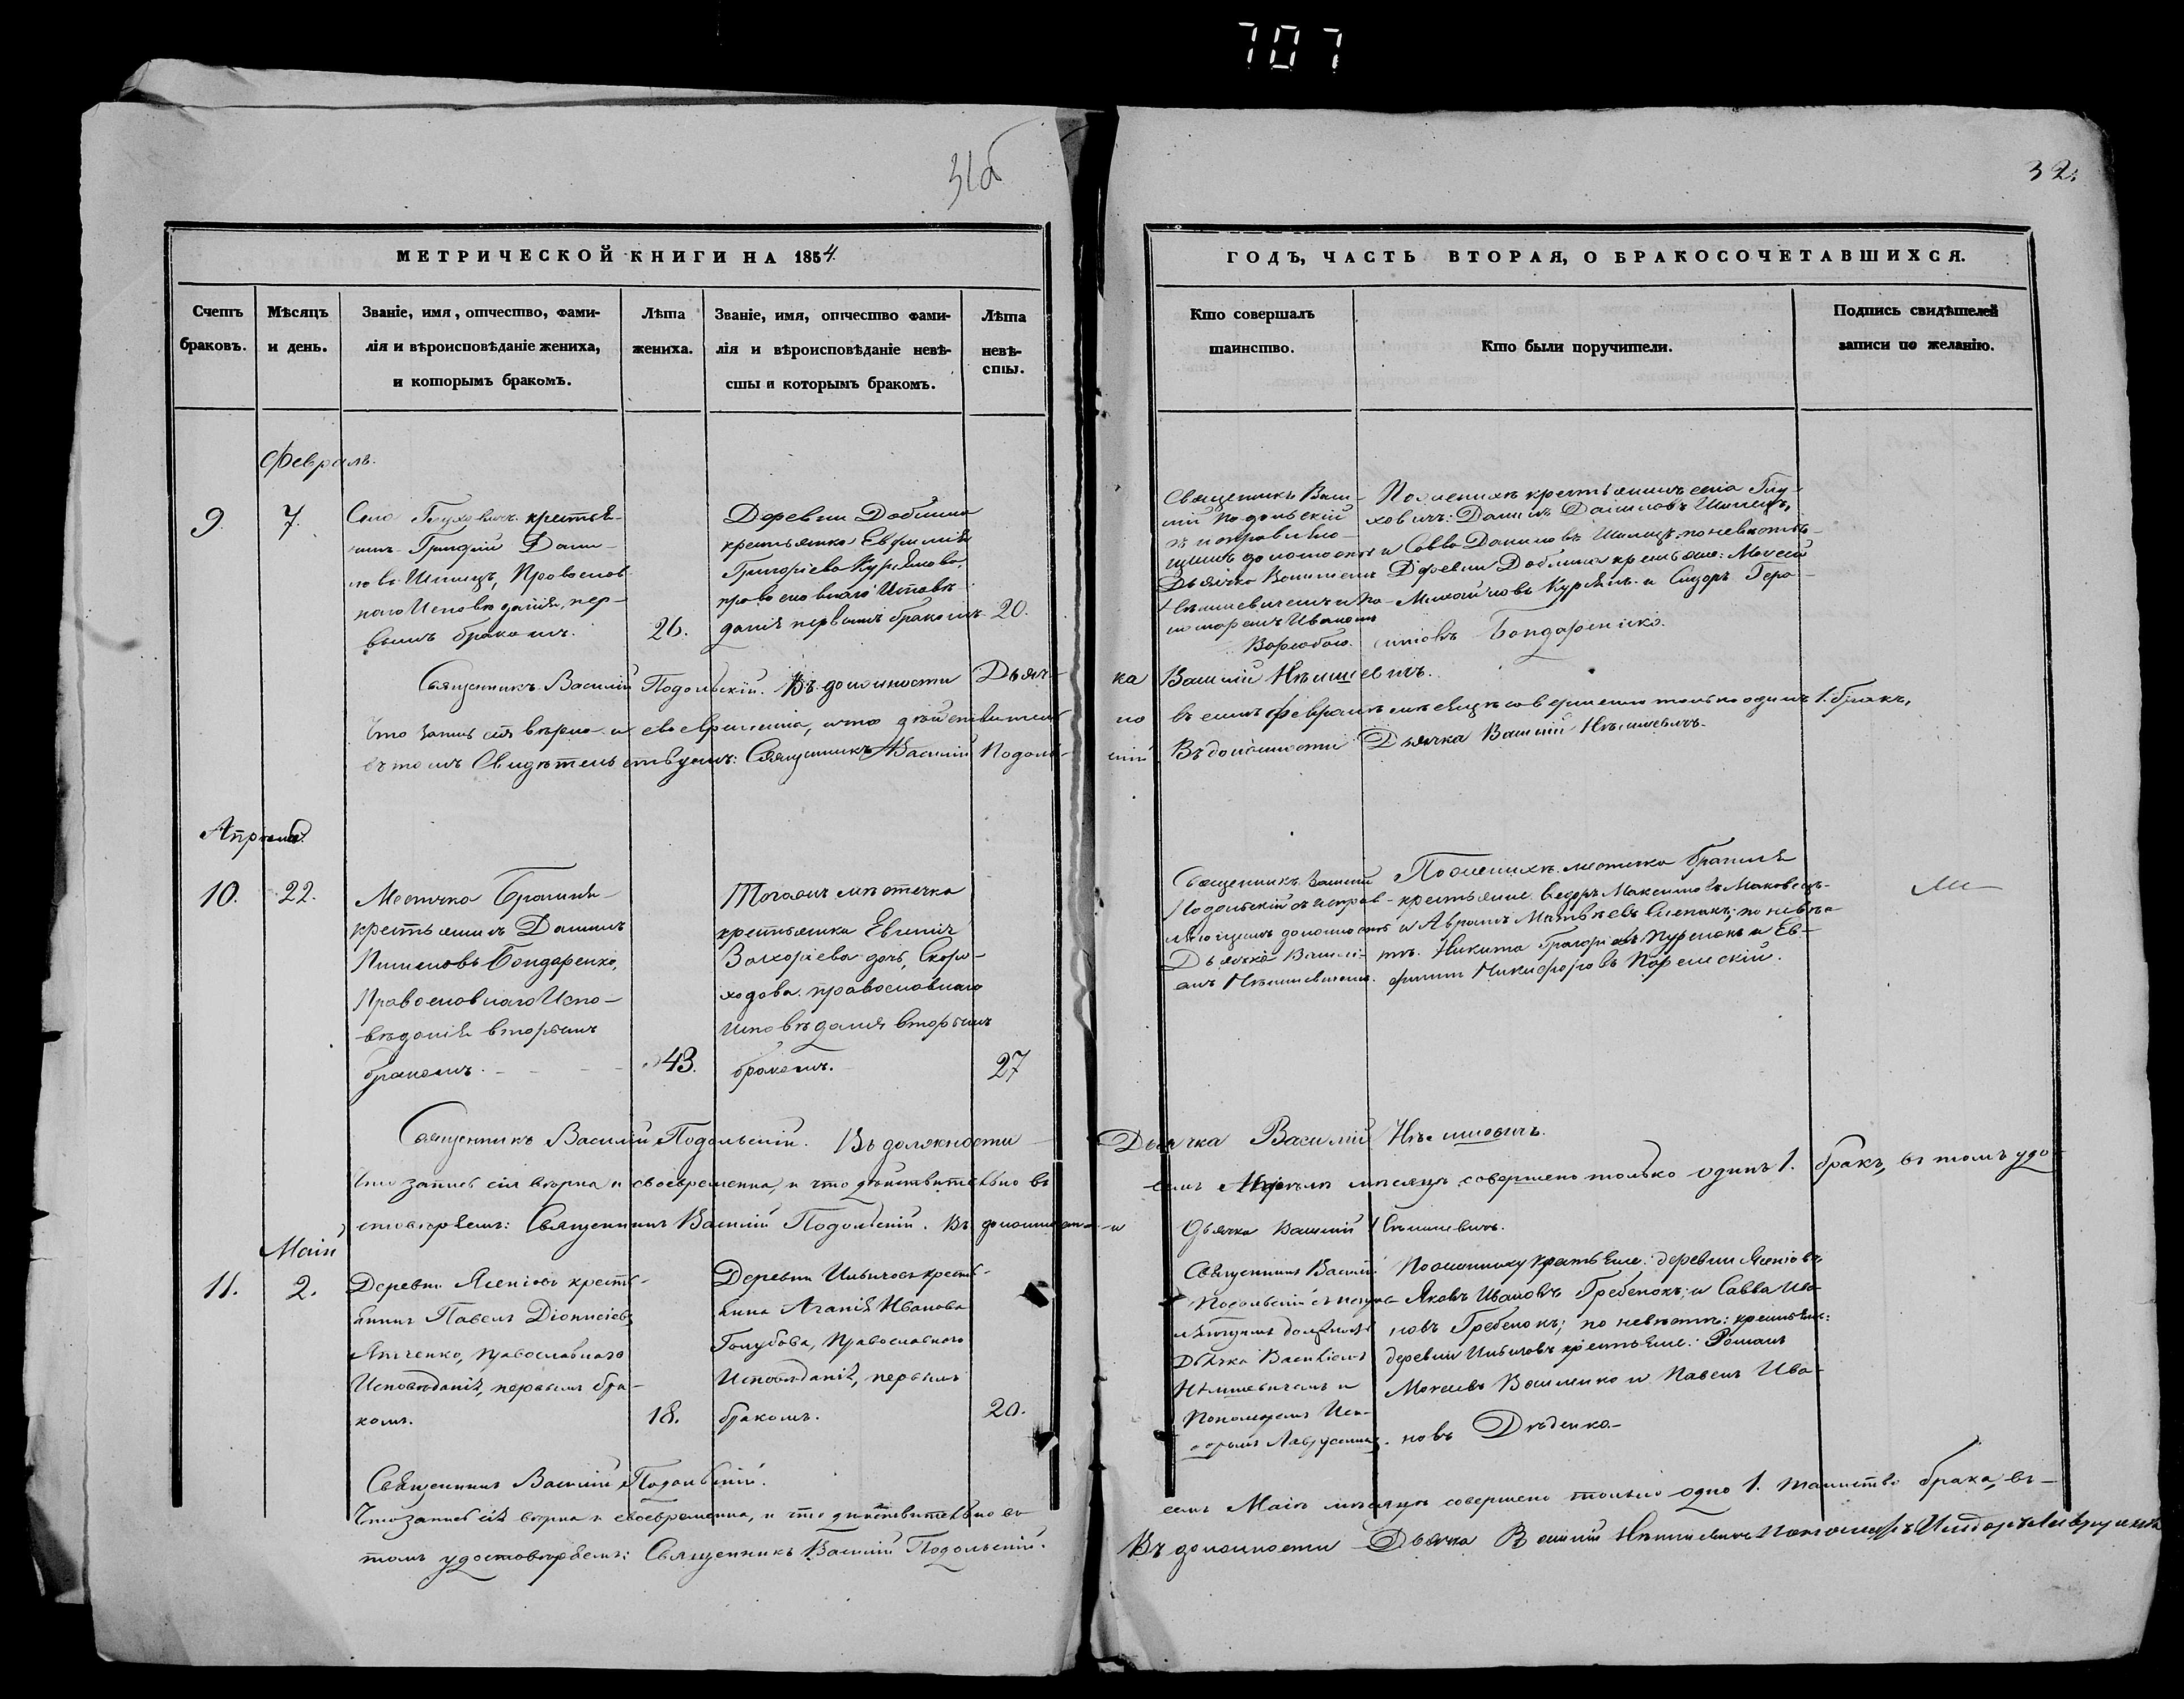 707
31б
32.
МЕТРИЧЕСКОЙ КНИГИ НА 1854.
Счетъ браковъ.
Мѣсяцъ и день.
Званіе, имя, отчество, фами-
лія и вѣроисповѣданіе жениха,
и которымъ бракомъ.
Лѣта
жениха.
Званіе, имя, отчество фами-
лія и вѣроисповѣданіе невѣ-
сты и которымъ бракомъ.
Лѣта
невѣ-
сты.
ГОДЪ, ЧАСТЬ ВТОРАЯ, О БРАКОСОЧЕТАВШИХСЯ.
Кто совершалъ
таинство.
Кто были поручители.
Подпись свидѣтелей
записи по желанію.
Февраль.
9.
7.
Села Глуховичъ крестья-
нинъ Григорій Дани-
ловъ Шпицъ, Православ
наго Исповѣданія, пер-
вымъ бракомъ.
26.
Деревни
крестьянка Евфимія
Григоріева
православнаго Исповѣ-
данія первымъ бракомъ
20.
Священникъ Васи-
лій Подольскій
съ исправляю-
щимъ должность
Дьячка Василіемъ
номаремъ Иваномъ
По женихѣ крестьянинъ села Глу-
ховичъ: Даниловъ
и Савва Даниловъ по невѣстѣ
Деревни крестьяне: Моисей
Михайловъ и Сидоръ Гера-
симовъ Бондаренко.
Священникъ Василій Подольскій. Въ должности Дьяч-
ка Василій
Что запись сія вѣрна и своевременна, и что дѣйствитель
но въ семъ Февралѣ мѣсяцѣ совершено только одинъ 1. бракъ,
въ томъ Свидѣтельствуемъ: Священникъ Василій Подоль-
скій Въ должности Дьячка Василій
Апрель.
10.
22.
Мѣстечка Брагиня
крестьянинъ Даніилъ
Пименовъ Бондаренко,
Православнаго Испо-
вѣданія вторымъ
бракомъ.
43.
Тогожъ мѣстечка
крестьянка Евгенія
Захаріева дочь, Скоро-
ходова православнаго
Исповѣданія вторымъ
бракомъ.
27
Священникъ Василій
Подольскій съ исправ-
ляющимъ должность
Дьячка Василі-
емъ
По женихѣ мѣстечка Брагиня
крестьяне Ѳедоръ Максимовъ Маковецъ
и Аврамъ Матвѣевъ по невѣс
тѣ Никита Григорьевъ и Ев-
фимъ Никифоровъ
Священникъ Василій Подольскій. Въ должности
Дьячка Василій
Что запись сія вѣрна и своевременна, и что дѣйствительно въ
семъ Апрелѣ мѣсяцѣ совершено только одинъ 1. бракъ, въ томъ удо-
стовѣряемъ: Священникъ Василій Подольскій. Въ должност-
и Дьячка Василій
Май
11.
2.
Деревни Ясеновъ кресть-
янинъ Павелъ Діонисіевъ
Ятченко, православнаго
Исповѣданія, первымъ бра-
комъ.
18.
Деревни Ильичовъ кресть-
янка Агапія Иванова
Голубова, Православнаго
Исповѣданія, первымъ
бракомъ.
20.
Священникъ Василій
Подольскій съ исправ-
ляющимъ должность
Дьячка Василіемъ
и
Пономаремъ Иси-
доромъ
крестьяне: деревни Ясеновъ
Яковъ Ивановъ Гребенокъ; и Савва Ива-
новъ Гребенокъ; по невѣстѣ: крестьяне:
деревни Ильичовъ крестьяне: Романъ
Моисеевъ Василенко и Павелъ Ива-
новъ Дѣденко.
Священникъ Василій Подольскій.
Что запись сія вѣрна и своевременна, и что дѣйствительно въ
семъ Маіѣ мѣсяцѣ совершено только одно 1. таинство брака, въ
томъ удостовѣряемъ: Священникъ Василій Подольскій.
Въ должности Дьячка Василій Пономарь